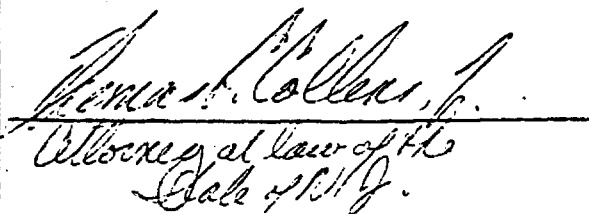 Thomas A. Collins, Jr.
Attorney at law of the
State of N.J.